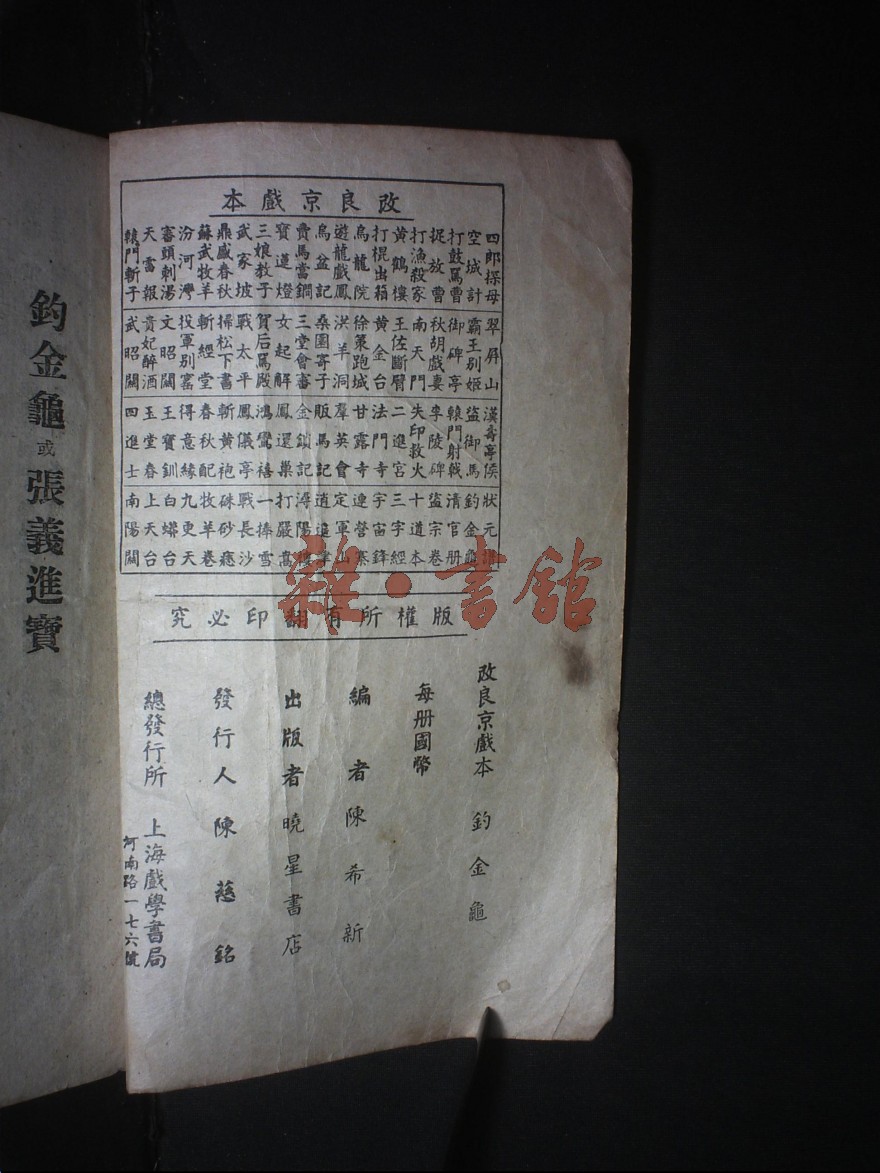 改良京戲本
四郎探母
空城計
打鼓罵曹
捉放曹
打漁殺家
黃鶴樓
打棍出箱
烏龍院
遊龍戲鳳
烏盆記
賣馬當鐧
寶蓮燈
三娘教子
武家坡
鼎盛春秋
蘇武牧羊
汾河灣
審頭刺湯
天雷報
轅門斬子
翠屏山
霸王别姬
御碑亭
秋胡戲妻
南天門
王佐斷臂
黃金台
徐策跑城
洪羊洞
桑園寄子
三堂會審
女起解
賀后罵殿
戰太平
掃松下書
斬經堂
投軍别窰
文昭關
貴妃醉酒
武昭關
漢壽亭侯
盜御馬
轅門射戟
李陵碑
失印救火
二進宮
法門寺
甘露寺
羣英會
販馬記
金鎖記
鳳還巢
鴻鸞禧
鳳儀亭
斬黃袍
春秋配
得意緣
王寶釧
玉堂春
四進士
狀元譜
釣金龜
清官册
盜宗卷
十道本
三字經
宇宙鋒
連營寨
定軍山
逍遙津
潯陽樓
打嚴嵩
一捧雪
戰長沙
硃砂痣
牧羊卷
九更天
白蟒台
上天台
南陽關
雜·書館
版權所有翻印必究
改良京戲本 釣金龜
每册國幣
編者陳希新
出版者曉星書店
發行人陳慈銘
總發行所 上海戲學書局
河南路一七六號
釣金龜或張義進寶